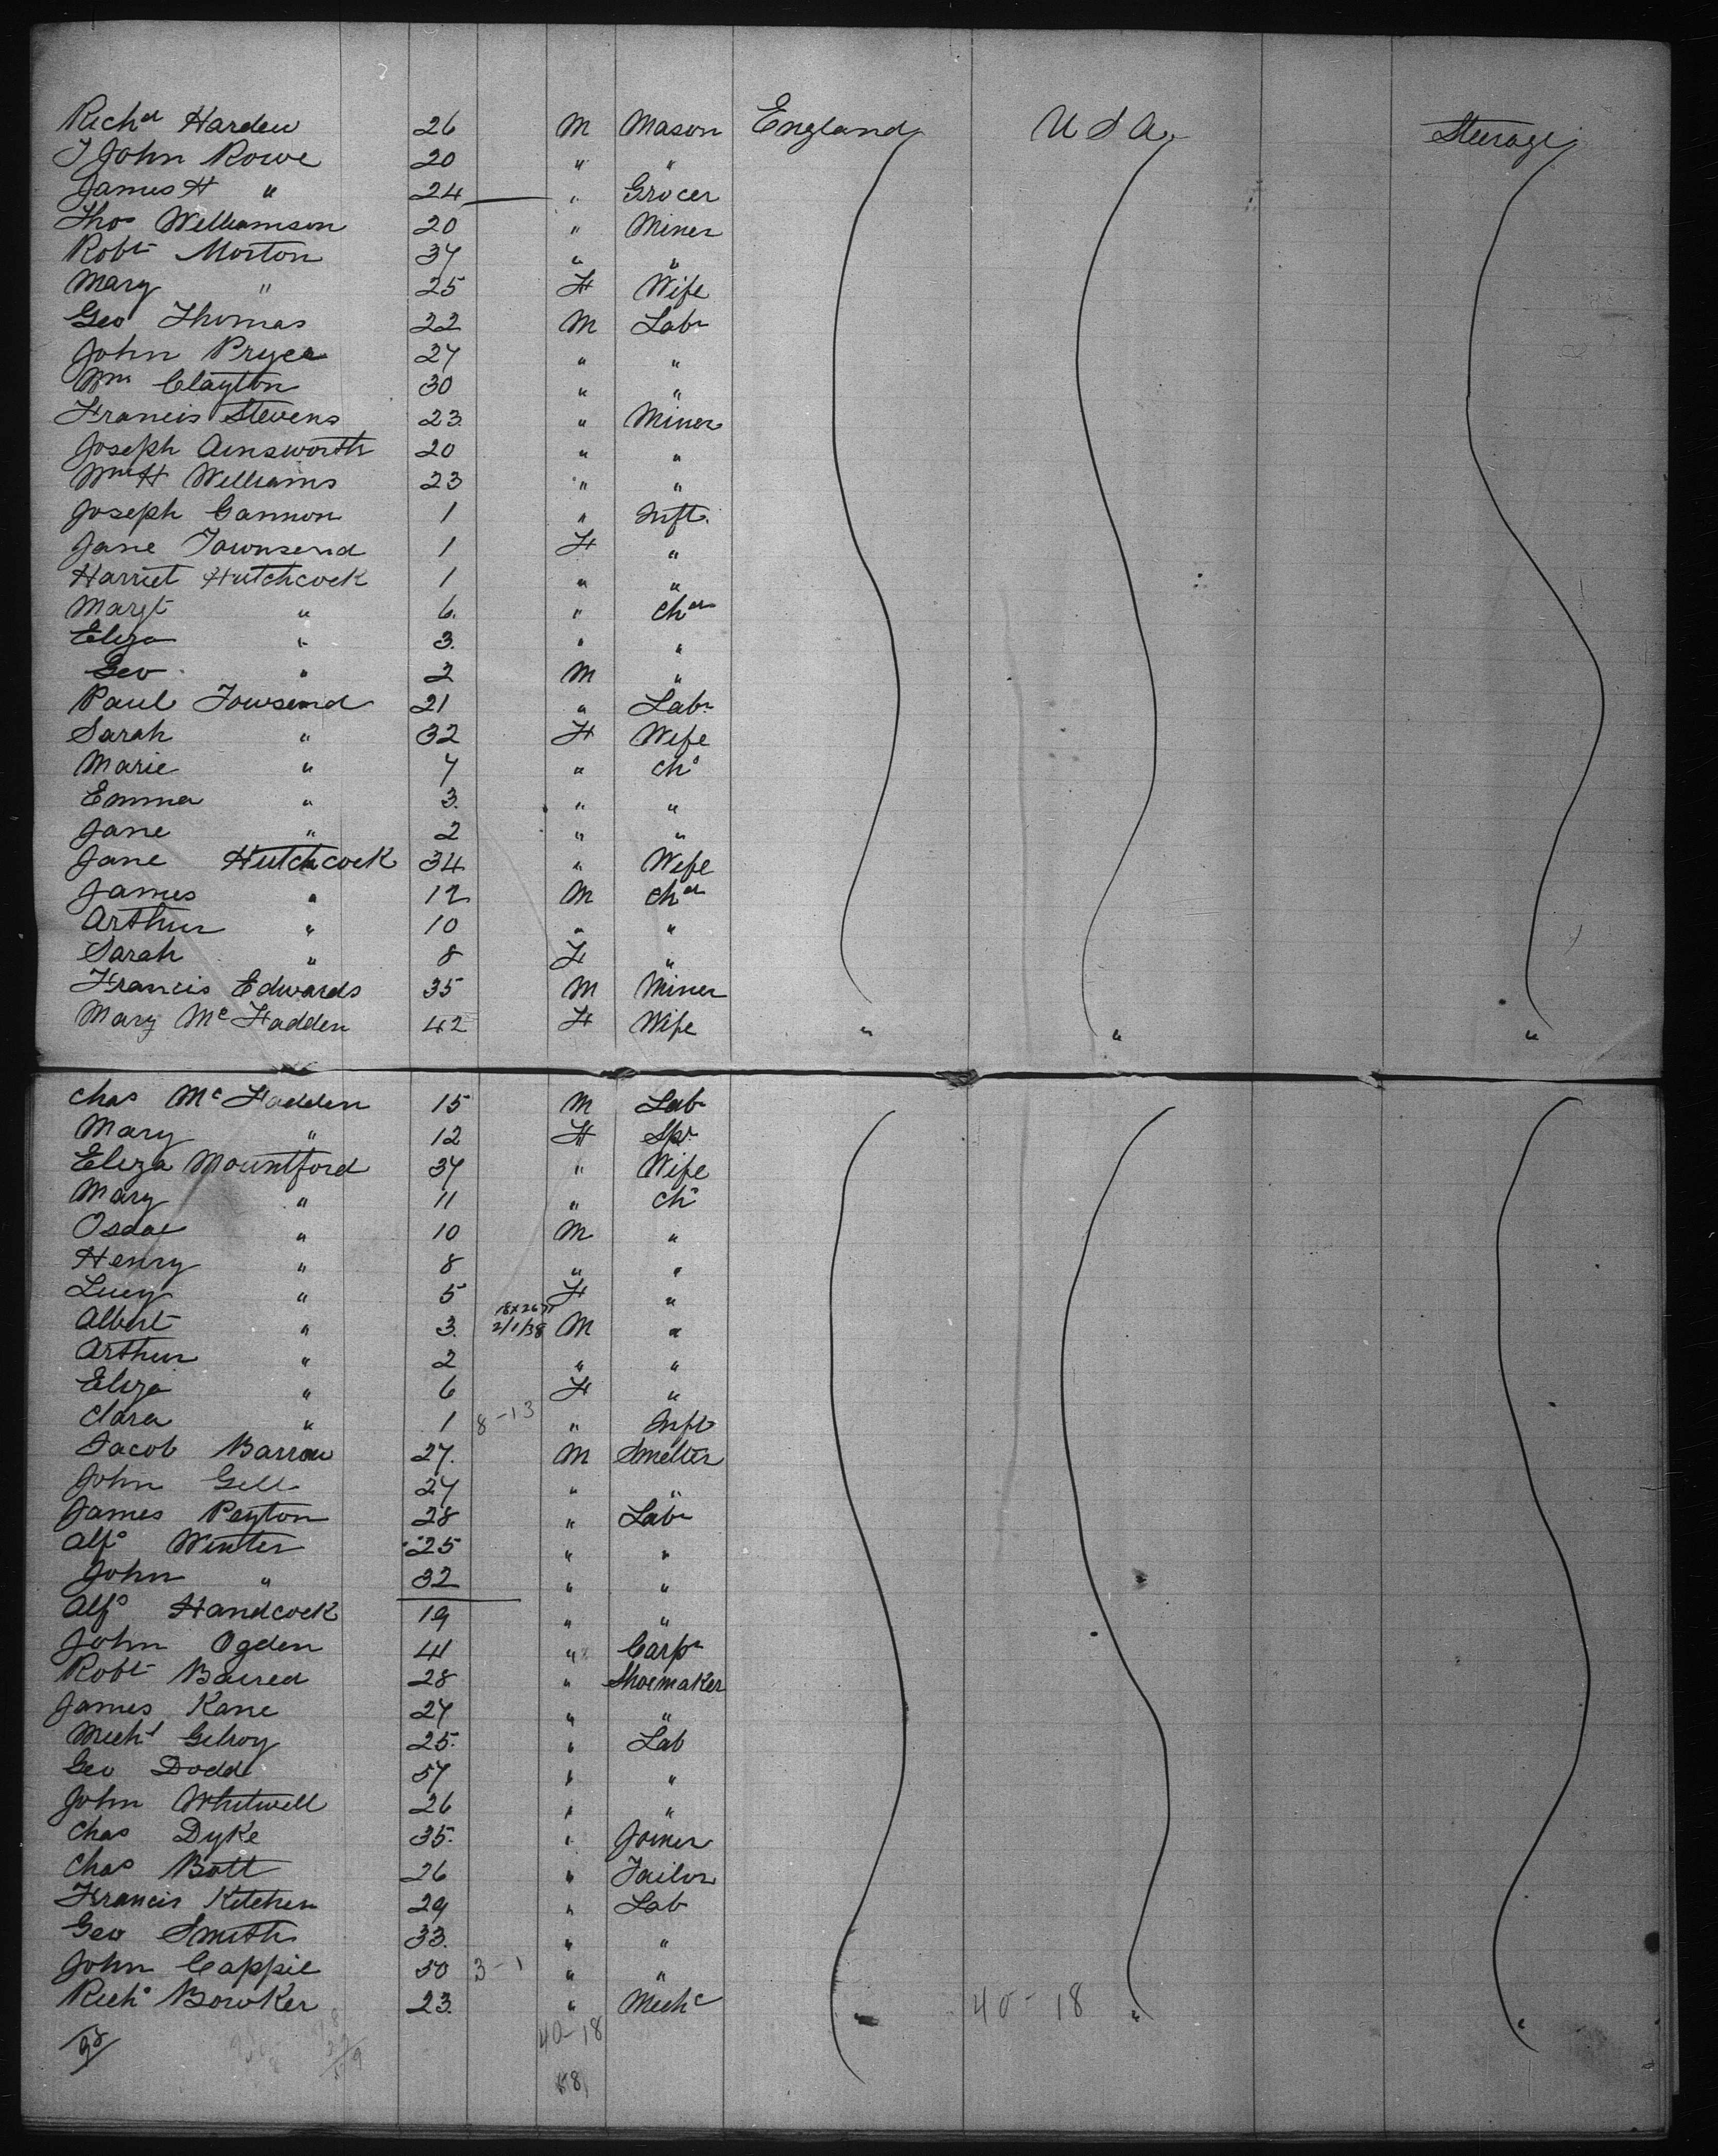 Richd Harden 26 M Mason England U S A Steerage
J John Rowe 20 " "
James H " 24 " Grocer
Thos Williamson 20 " Miner
Robt Morton 37 " "
Mary " 25 F Wife
Geo Thomas 22 M Labr
John Pryer 27 " "
Wm Clayton 30 " "
Francis Stevens 23 " Miner
Joseph Ainsworth 20 " "
Wm H Williams 23 " "
Joseph Gannon 1 " Inft
Jane Townsend 1 F "
Harriet Hutchcock 1 " "
Margt " 6 " Chd
Eliza " 3 " "
Geo " 2 M "
Paul Towsend 21 " Labr
Sarah " 32 F Wife
Marie " 7 " Chd
Emma " 3 " "
Jane " 2 " "
Jane Hutchcock 34 " Wife
James " 12 M Chd
Arthur " 10 " "
Sarah " 8 F "
Francis Edwards 35 M Miner
Mary McFadden 42 F Wife " " "
Chas McFadden 15 M Labr
Mary " 12 F Spr
Eliza Mountford 37 " Wife
Mary " 11 " Chd
" 10 M "
Henry " 8 " "
Lucy " 5 F "
Albert " 3 2/1/38 M "
Arthur " 2 " "
Eliza " 6 F "
Clara " 1 8-13 " Inft
Jacob Barrow 27 M Smelter
John Gell 27 " "
James Peyton 28 " Labr
Alfd Winter 25 " "
John " 32 " "
Alfd Handcock 19 " "
John Ogden 41 " Carpr
Robt Baired 28 " Shoemaker
James Kane 27 " "
Michl Gilroy 25 " Lab
Geo Dodd 57 " "
John Whitwell 26 " "
Chas Dyke 35 " Joiner
Chas Bott 26 " Tailor
Francis Kitchen 29 " Lab
Geo Smith 33 " "
John Cappie 50 3-1 " "
Richd Bowker 23 " Mechc " 40-18 " "
40-18
58